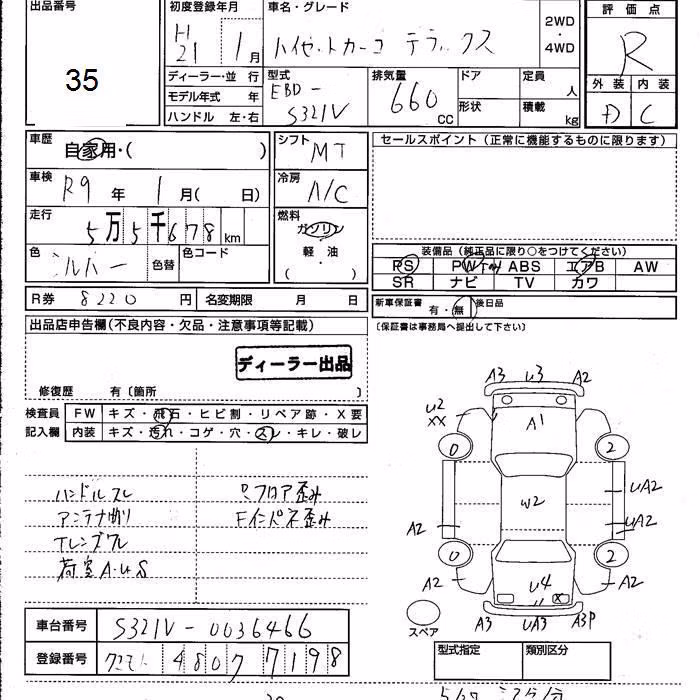 出品番号
35
初度登録年月
H21 1月
車名・グレード
ハイゼットカーゴ デラックス
2WD・4WD
評価点
R
外装 内装
D C
ディーラー・並行
モデル年式 年
ハンドル 左・右
型式
EBD-S321V
排気量
660cc
ドア
形状
定員 人
積載 kg
車歴
自家用・( )
シフト
MT
セールスポイント(正常に機能するものに限ります)
車検
R9年 1月( 日)
冷房
A/C
走行
5万5千678km
燃料
ガソリン
軽・油
( ・ )
色
シルバー
色替
色コード
装備品(純正品に限り○をつけてください)
PS PW ABS エアB AW
SR ナビ TV カワ
R券 8220円
名変期限 月 日
新車保証書 有・無
後日品
(保証書は事務局へ提出して下さい)
出品店申告欄(不良内容・欠品・注意事項等記載)
ディーラー出品
修復歴 有〔箇所 〕
検査員記入欄
FW キズ・飛石・ヒビ割・リペア跡・X要
内装 キズ・汚れ・コゲ・穴・スレ・キレ・破レ
ハンドルスレ
アンテナ曲り
Tレンズワレ
荷室A.U.S
R.フロア歪み
Fインパネ歪み
A3 U3 A2
U2
XX
A1
0 2
W2
UA2
A2 UA2
0 2
A2 U4 A2
X
A3 UA3 A3P
スペア
車台番号
S321V-0036466
登録番号
480 77198
型式指定
類別区分